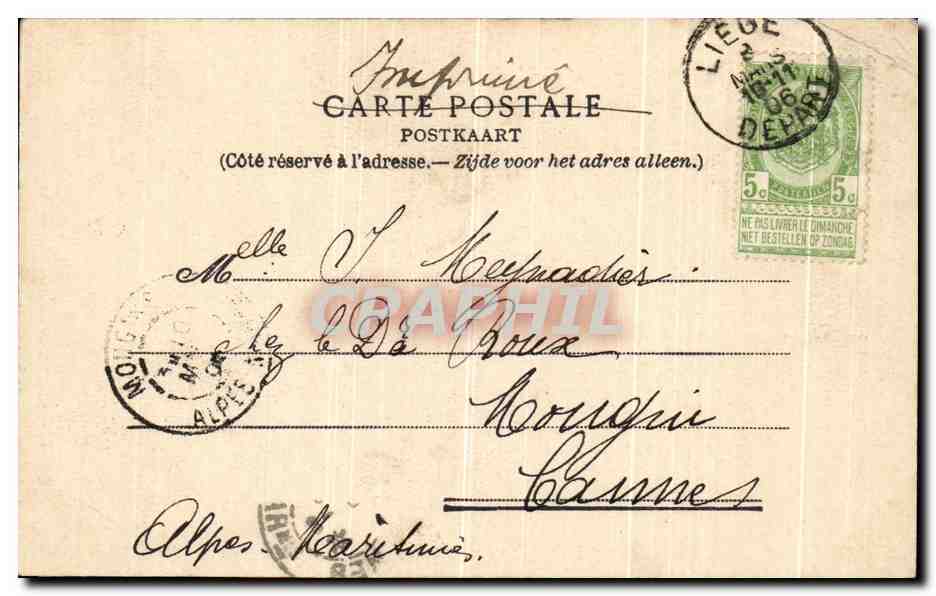 Imprimé
CARTE POSTALE
POSTKAART
(Côté réservé à l'adresse.— Zijde voor het adres alleen.)
LIÉGE
MARS
10-11
06
DEPART
5c 5c
NE PAS LIVRER LE DIMANCHE
NIET BESTELLEN OP ZONDAG
Melle J Meynadier
chez le Dr Roux
Mougin
Cannes
Alpes-Maritimes.
ALPES
CPARAMA
CRAPHIL